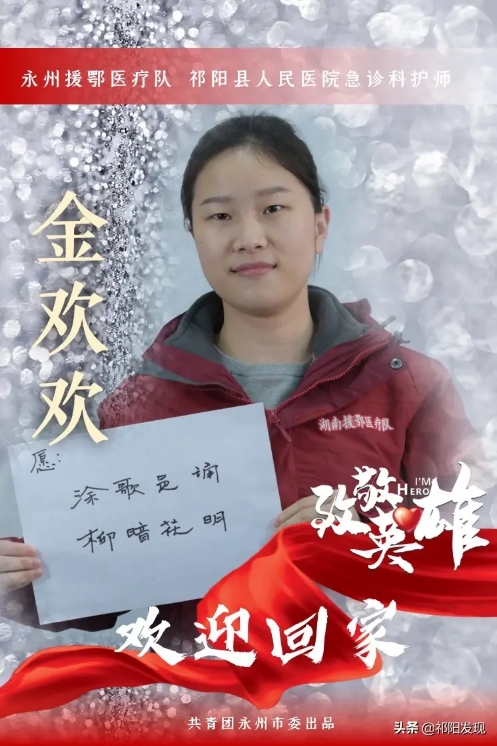 永州援鄂医疗队 祁阳县人民医院急诊科护师
金欢欢
湖南援鄂医疗队
愿：
涂歌邑诵
柳暗花明
致敬英雄
I'M
HERO
欢迎回家
共青团永州市委出品
头条 @祁阳发现